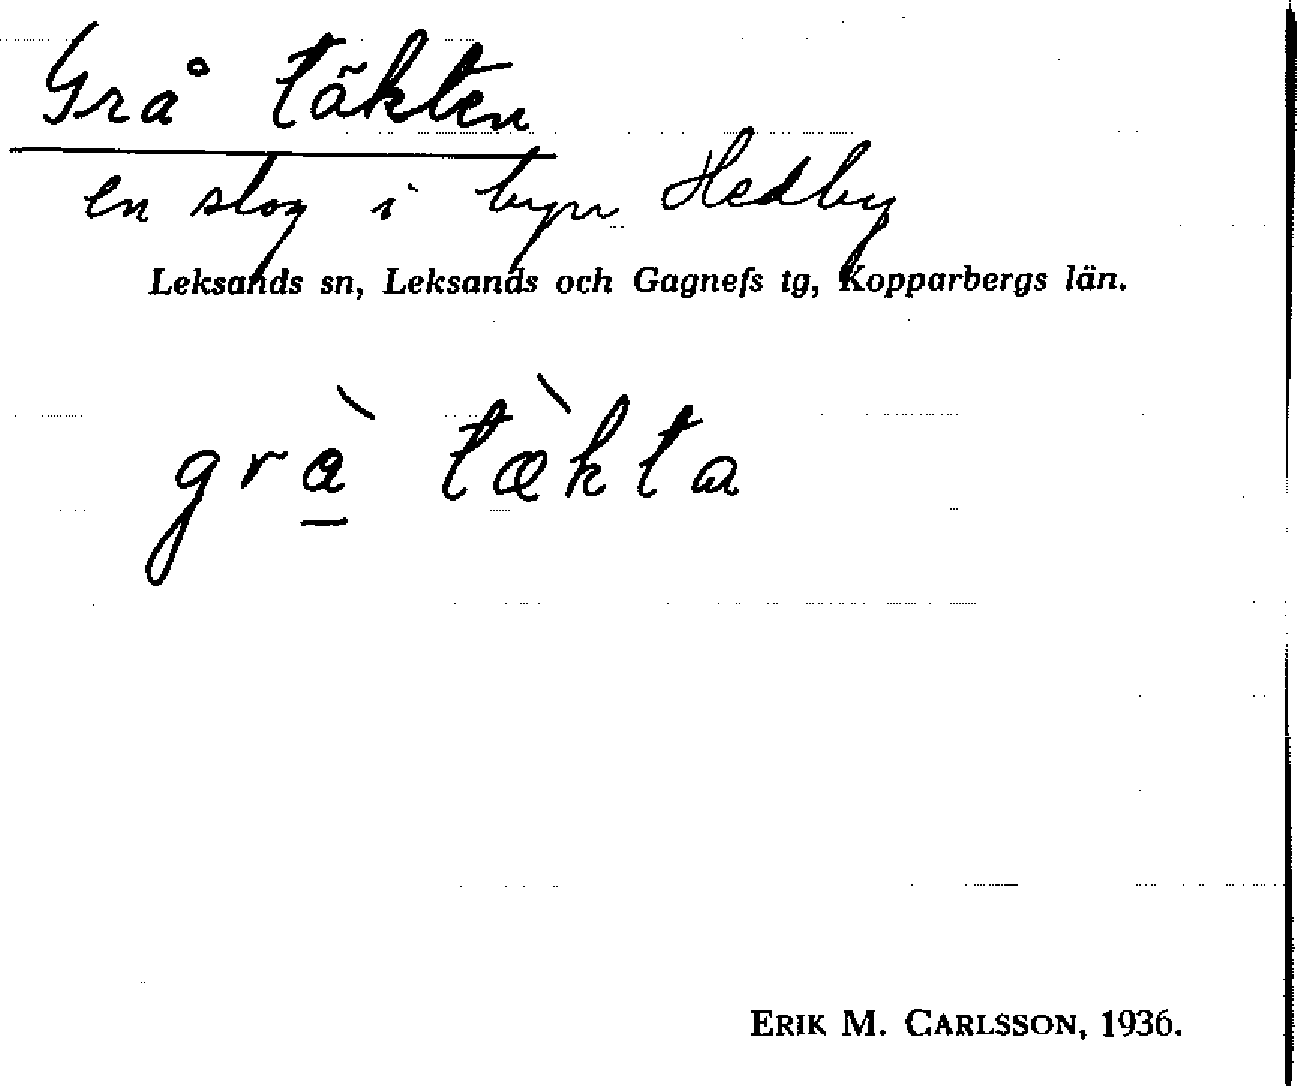 Grå täkten
en slog i byn Hedby
Leksands sn, Leksands och Gagnefs tg, Kopparbergs län.
grà tæ̀kta
ERIK M. CARLSSON, 1936.